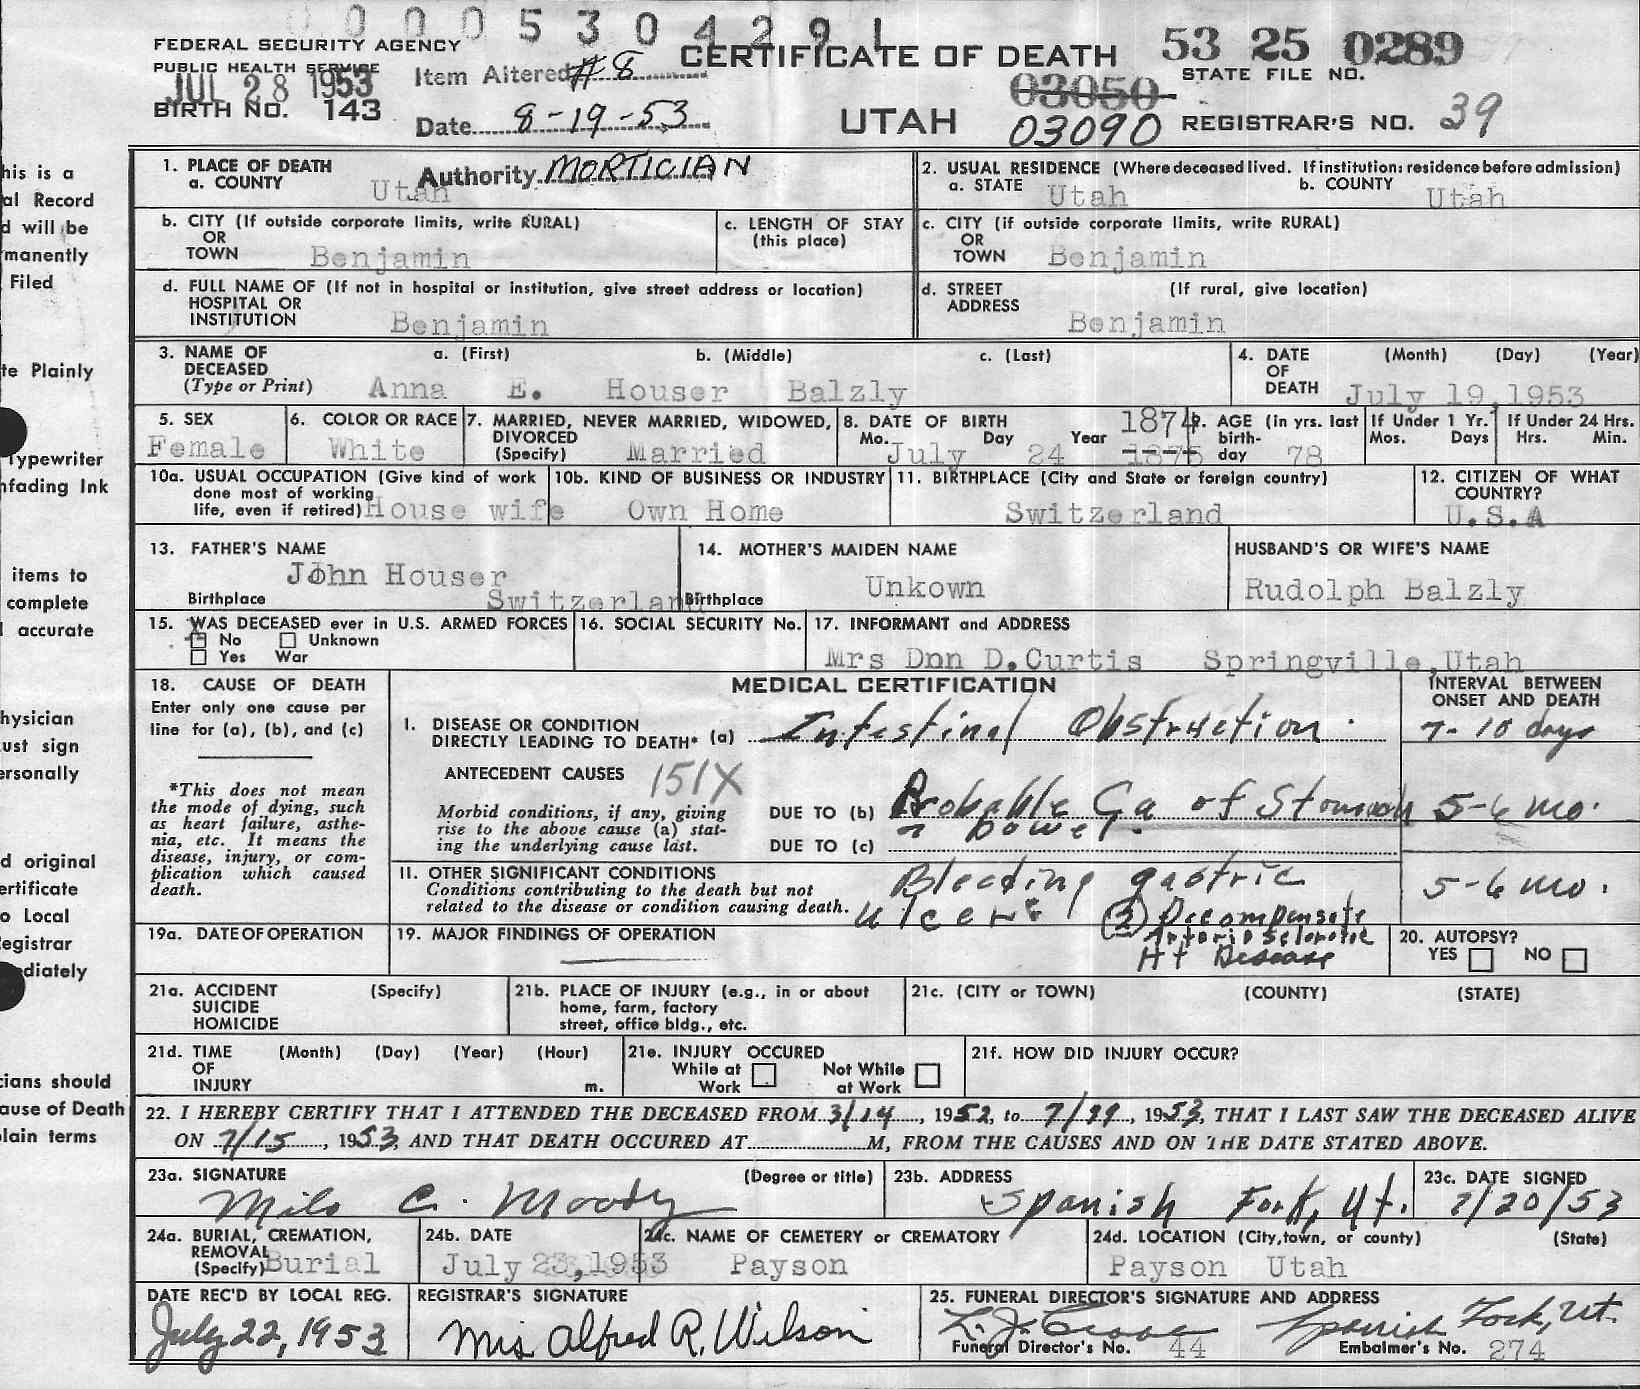 0005304291
FEDERAL SECURITY AGENCY
PUBLIC HEALTH SERVICE
JUL 28 1953
BIRTH NO. 143
Item Altered #8
Date 8-19-53
Authority MORTICIAN
CERTIFICATE OF DEATH
UTAH
53 25 0289
STATE FILE NO.
03050
03090
REGISTRAR'S NO. 39
1. PLACE OF DEATH
a. COUNTY Utah
2. USUAL RESIDENCE (Where deceased lived. If institution: residence before admission)
a. STATE Utah b. COUNTY Utah
b. CITY (If outside corporate limits, write RURAL)
OR
TOWN Benjamin
c. LENGTH OF STAY
(this place)
c. CITY (if outside corporate limits, write RURAL)
OR
TOWN Benjamin
d. FULL NAME OF (If not in hospital or institution, give street address or location)
HOSPITAL OR
INSTITUTION Benjamin
d. STREET (If rural, give location)
ADDRESS Benjamin
3. NAME OF a. (First) b. (Middle) c. (Last)
DECEASED
(Type or Print) Anna E. Houser Balzly
4. DATE (Month) (Day) (Year)
OF
DEATH July 19,1953
5. SEX
Female
6. COLOR OR RACE
White
7. MARRIED, NEVER MARRIED, WIDOWED,
DIVORCED
(Specify) Married
8. DATE OF BIRTH 1874
Mo. Day Year
July 24 1875
9. AGE (in yrs. last
birth-
day 78
If Under 1 Yr.
Mos. Days
If Under 24 Hrs.
Hrs. Min.
10a. USUAL OCCUPATION (Give kind of work
done most of working
life, even if retired) House wife
10b. KIND OF BUSINESS OR INDUSTRY
Own Home
11. BIRTHPLACE (City and State or foreign country)
Switzerland
12. CITIZEN OF WHAT
COUNTRY?
U.S.A
13. FATHER'S NAME
John Houser
Birthplace Switzerland
14. MOTHER'S MAIDEN NAME
Unkown
Birthplace
HUSBAND'S OR WIFE'S NAME
Rudolph Balzly
15. WAS DECEASED ever in U.S. ARMED FORCES
No Unknown
Yes War
16. SOCIAL SECURITY No.
17. INFORMANT and ADDRESS
Mrs Dnn D.Curtis Springville,Utah
18. CAUSE OF DEATH
Enter only one cause per
line for (a), (b), and (c)
*This does not mean
the mode of dying, such
as heart failure, asthe-
nia, etc. It means the
disease, injury, or com-
plication which caused
death.
MEDICAL CERTIFICATION
INTERVAL BETWEEN
ONSET AND DEATH
I. DISEASE OR CONDITION
DIRECTLY LEADING TO DEATH* (a) Intestinal Obstruction. 7-10 days
ANTECEDENT CAUSES 151X
Morbid conditions, if any, giving
rise to the above cause (a) stat-
ing the underlying cause last.
DUE TO (b) Probable Ca of Stomach 5-6 mo.
bowel.
DUE TO (c)
II. OTHER SIGNIFICANT CONDITIONS
Conditions contributing to the death but not
related to the disease or condition causing death.
Bleeding gastric 5-6 mo.
ulcer (2) Decompensate
Arterio Sclerotic
Ht Disease
19a. DATE OF OPERATION
19. MAJOR FINDINGS OF OPERATION
20. AUTOPSY?
YES NO
21a. ACCIDENT (Specify)
SUICIDE
HOMICIDE
21b. PLACE OF INJURY (e.g., in or about
home, farm, factory
street, office bldg., etc.
21c. (CITY or TOWN) (COUNTY) (STATE)
21d. TIME (Month) (Day) (Year) (Hour)
OF
INJURY m.
21e. INJURY OCCURED
While at Not While
Work at Work
21f. HOW DID INJURY OCCUR?
22. I HEREBY CERTIFY THAT I ATTENDED THE DECEASED FROM 3/14, 1952, to 7/19, 1953, THAT I LAST SAW THE DECEASED ALIVE
ON 7/15, 1953, AND THAT DEATH OCCURED AT M, FROM THE CAUSES AND ON THE DATE STATED ABOVE.
23a. SIGNATURE (Degree or title)
Milo C. Moody
23b. ADDRESS
Spanish Fork, Ut.
23c. DATE SIGNED
7/20/53
24a. BURIAL, CREMATION,
REMOVAL
(Specify) Burial
24b. DATE
July 23,1953
24c. NAME OF CEMETERY OR CREMATORY
Payson
24d. LOCATION (City,town, or county) (State)
Payson Utah
DATE REC'D BY LOCAL REG.
July 22, 1953
REGISTRAR'S SIGNATURE
Mrs Alfred R. Wilson
25. FUNERAL DIRECTOR'S SIGNATURE AND ADDRESS
Spanish Fork, Ut.
Funeral Director's No. 44
Embalmer's No. 274
his is a
al Record
d will be
manently
Filed
te Plainly
Typewriter
nfading Ink
items to
complete
accurate
hysician
ust sign
ersonally
d original
ertificate
o Local
egistrar
ediately
cians should
ause of Death
lain terms